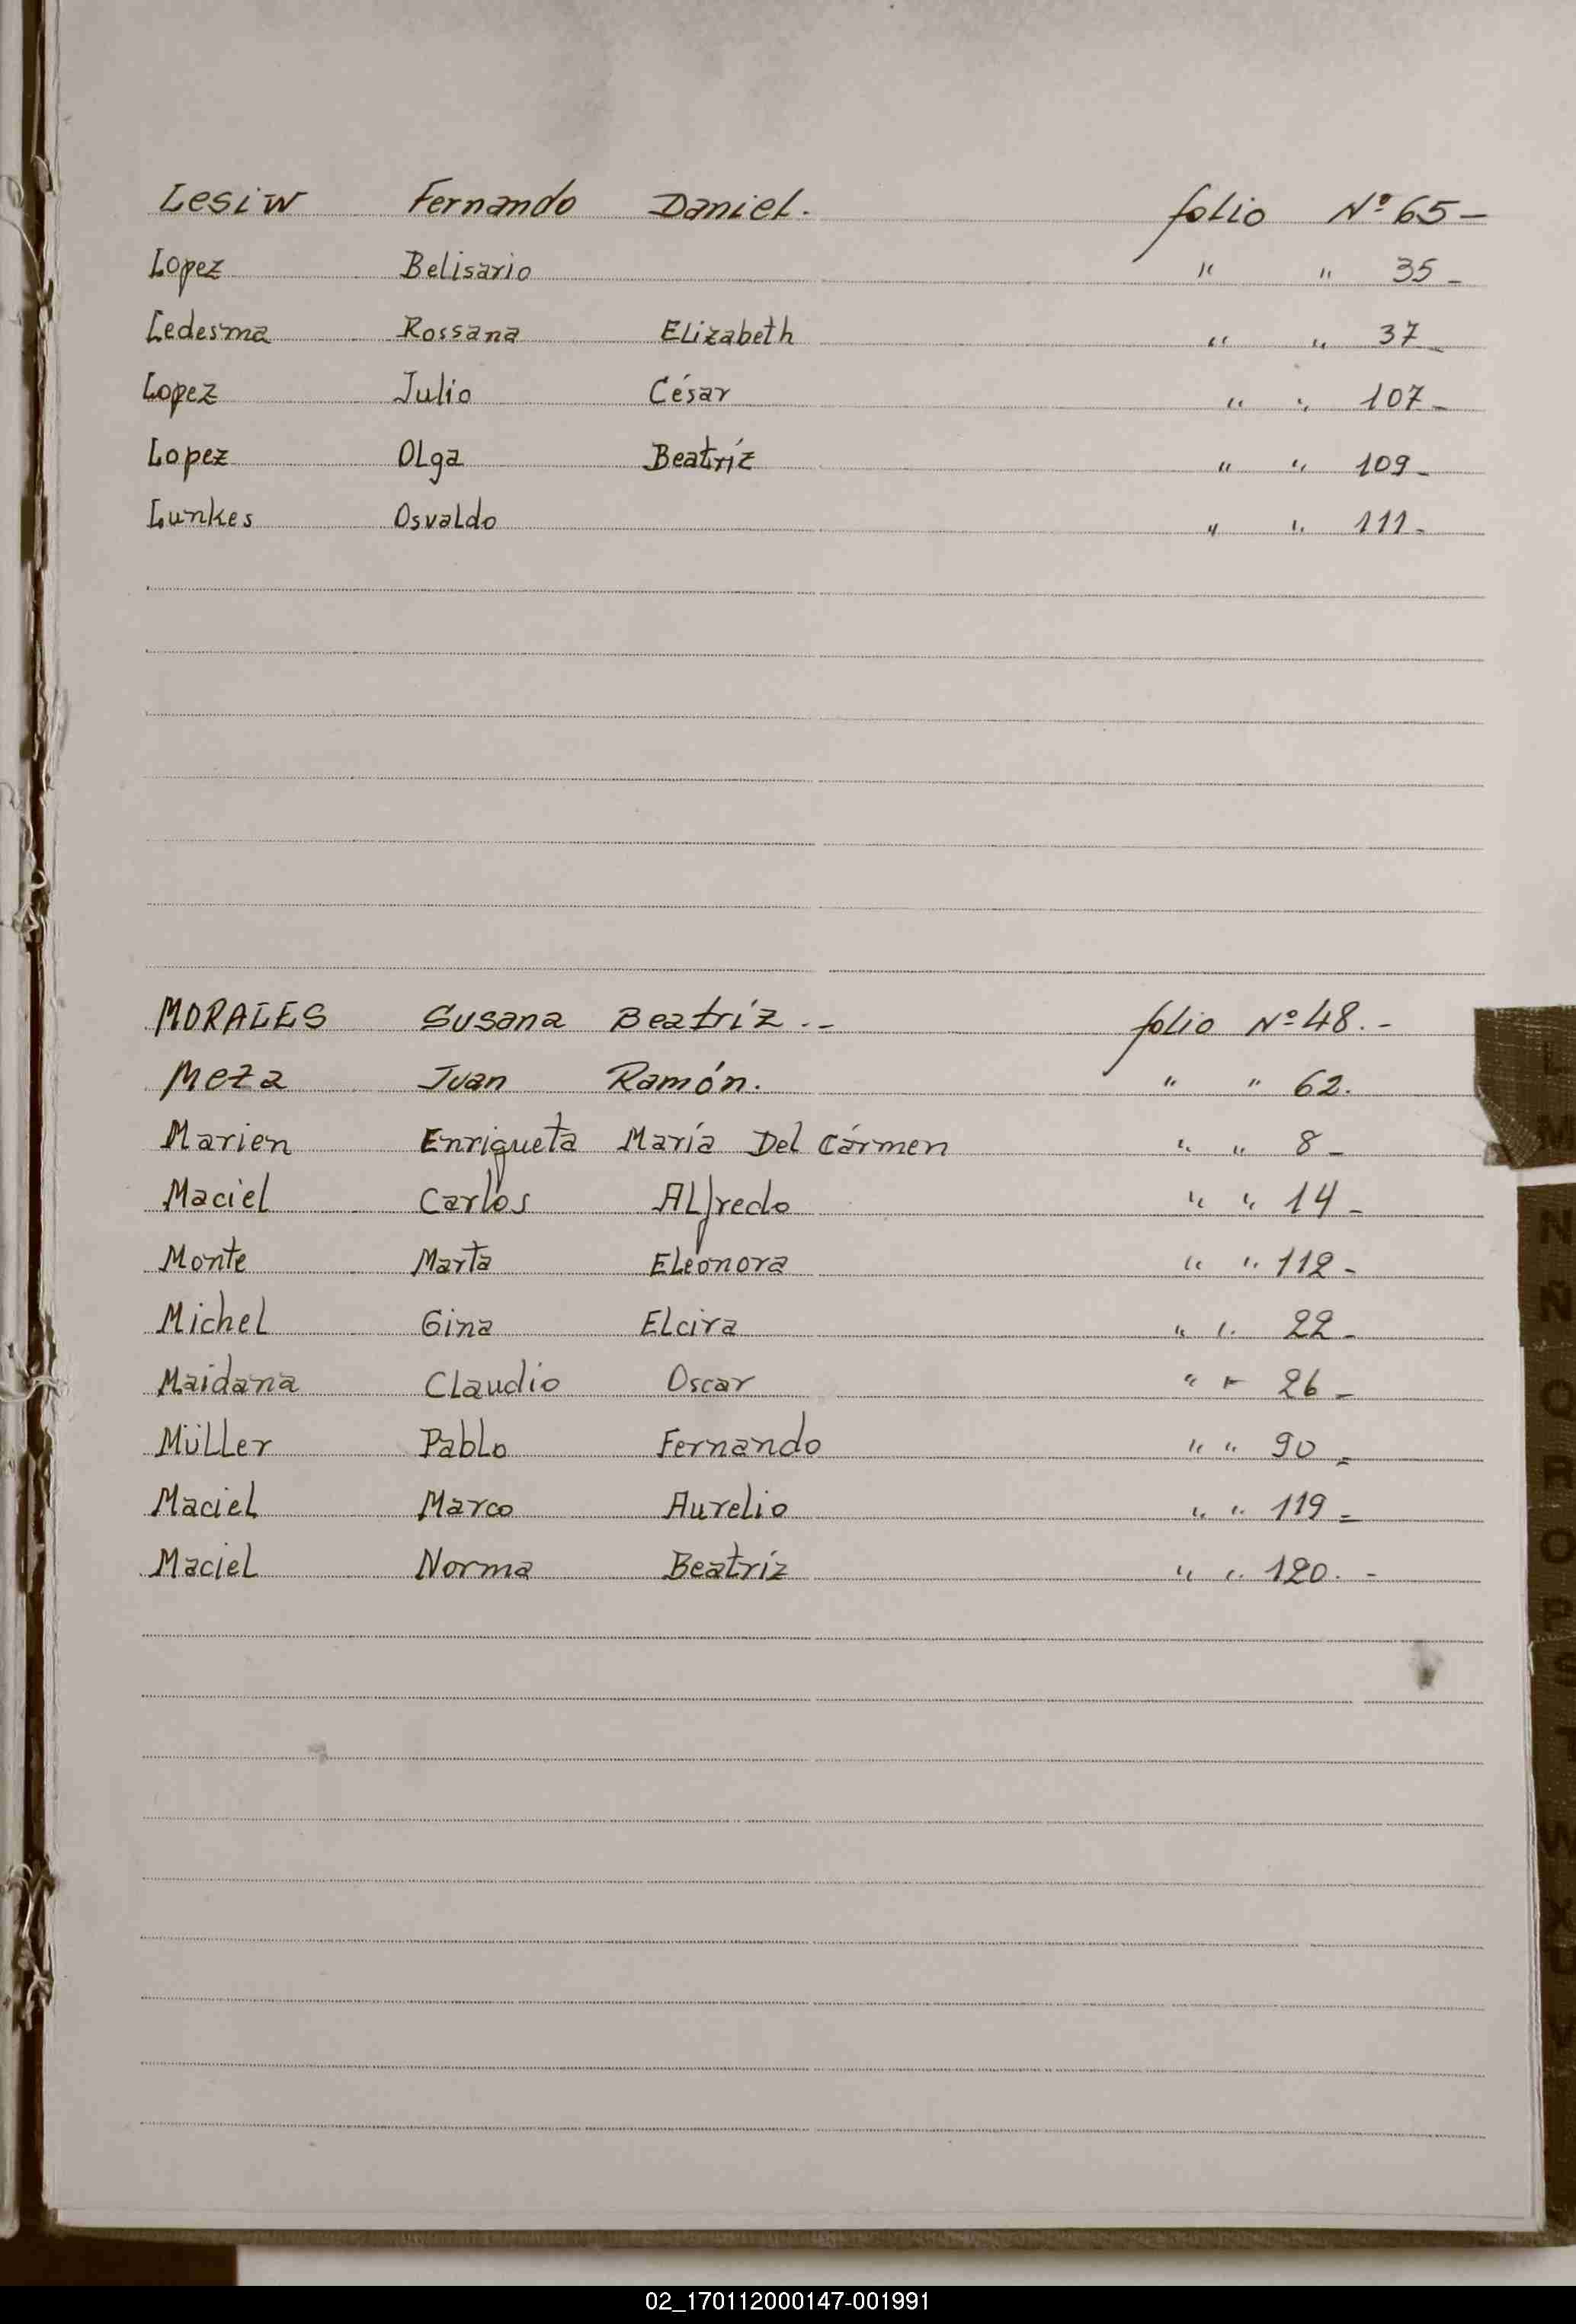 Lesiw Fernando Daniel. folio Nº 65-
Lopez Belisario " " 35-
Ledesma Rossana Elizabeth " " 37-
Lopez Julio César " " 107-
Lopez Olga Beatríz " " 109-
Lunkes Osvaldo " " 111-
MORALES Susana Beatríz.- folio Nº 48.-
Meza Juan Ramón. " " 62.
Marien Enriqueta María Del Cármen " " 8-
Maciel Carlos Alfredo " " 14-
Monte Marta Eleonora " " 112-
Michel Gina Elcira " " 22-
Maidana Claudio Oscar " " 26-
Müller Pablo Fernando " " 90=
Maciel Marco Aurelio " " 119=
Maciel Norma Beatríz " " 120.-
L
M
N
Ñ
O
02_170112000147-001991